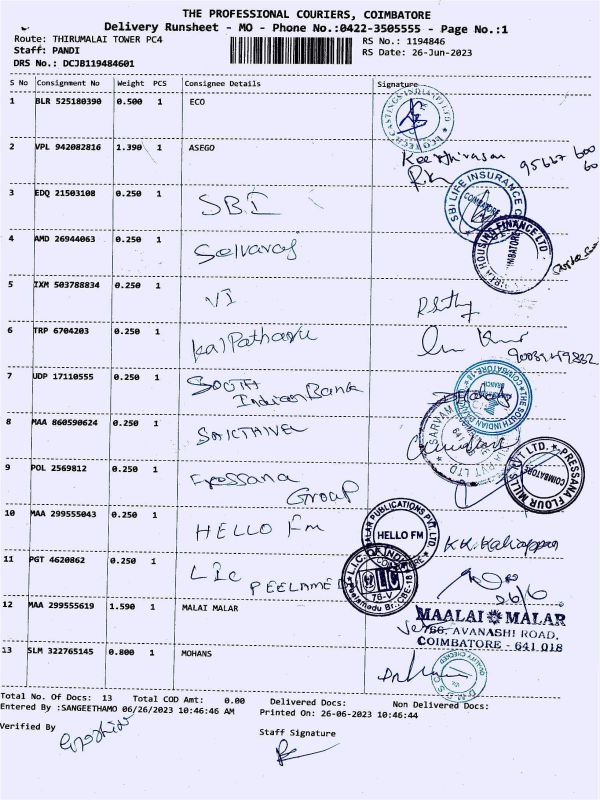 THE PROFESSIONAL COURIERS, COIMBATORE
Delivery Runsheet - MO - Phone No.:0422-3505555 - Page No.:1
Route: THIRUMALAI TOWER PC4
RS No.: 1194846
Staff: PANDI
RS Date: 26-Jun-2023
DRS No.: DCJB119484601
S No Consignment No Weight PCS Consignee Details Signature
1 BLR 525180390 0.500 1 ECO
2 VPL 942082816 1.390 1 ASEGO
Keerthivasan
3 EDQ 21503108 0.250 1 SBI
SBI LIFE INSURANCE
COIMBATORE
4 AMD 26944063 0.250 1 Selvaraj
HOUSING FINANCE LTD.
5 IXM 503788834 0.250 1 VI
6 TRP 6704203 0.250 1 Kalpatharu
7 UDP 17110555 0.250 1 South
Indian Bank
THE SOUTH INDIAN
COIMBATORE
8 MAA 860590624 0.250 1
SARVAM
9 POL 2569812 0.250 1
Group
PRESSANA FLOUR MILLS PVT LTD.
COIMBATORE
10 MAA 299555043 0.250 1 HELLO Fm
MALAR PUBLICATIONS PVT. LTD
HELLO FM
11 PGT 4620862 0.250 1 LIC
PEELAMED
L.I.C. OF INDIA
LIC
Peelamedu Br.
26/6
12 MAA 299555619 1.590 1 MALAI MALAR
MAALAI MALAR
AVANASHI ROAD,
COIMBATORE - 641 018
13 SLM 322765145 0.800 1 MOHANS
QUALITY CHECKED
Total No. Of Docs: 13 Total COD Amt: 0.00 Delivered Docs: Non Delivered Docs:
Entered By :SANGEETHAMO 06/26/2023 10:46:46 AM Printed On: 26-06-2023 10:46:44
Verified By
Staff Signature